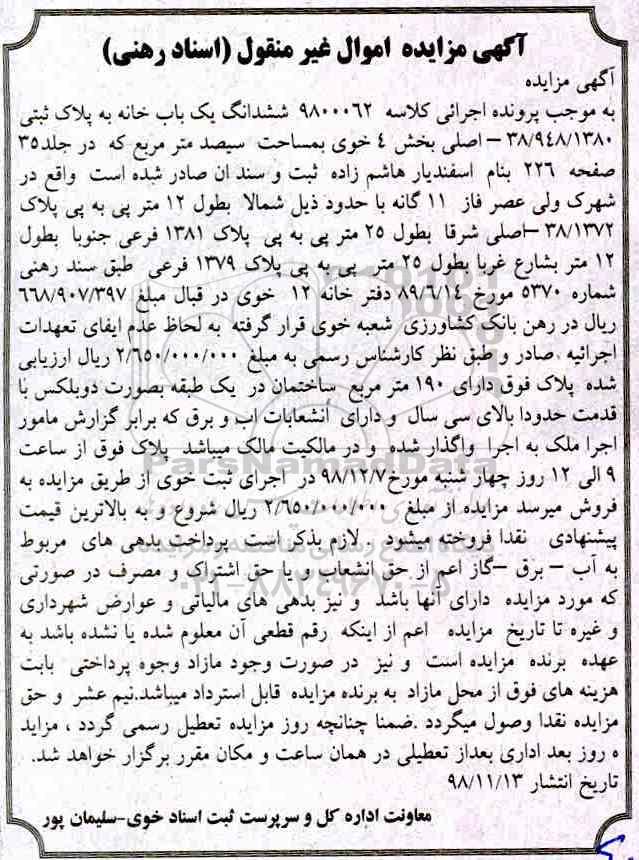 آگهی مزایده اموال غیر منقول (اسناد رهنی)
آگهی مزایده
به موجب پرونده اجرائی کلاسه ۹۸۰۰۰۶۲ ششدانگ یک باب خانه به پلاک ثبتی
۳۸/۹۴۸/۱۳۸۰ – اصلی بخش ٤ خوی بمساحت سیصد متر مربع که در جلد۳۵
صفحه ۲۲۶ بنام اسفندیار هاشم زاده ثبت و سند ان صادر شده است واقع در
شهرک ولی عصر فاز ۱۱ گانه با حدود ذیل شمالا بطول ۱۲ متر پی به پی پلاک
۳۸/۱۳۷۲ –اصلی شرقا بطول ۲۵ متر پی به پی پلاک ۱۳۸۱ فرعی جنوبا بطول
۱۲ متر بشارع غربا بطول ۲۵ متر پی به پی پلاک ۱۳۷۹ فرعی طبق سند رهنی
شماره ۵۳۷۰ مورخ ۸۹/٦/۱٤ دفتر خانه ۱۲ خوی در قبال مبلغ ٦٦۸/۹۰۷/۳۹۷
ریال در رهن بانک کشاورزی شعبه خوی قرار گرفته به لحاظ عدم ایفای تعهدات
اجرائیه صادر و طبق نظر کارشناس رسمی به مبلغ ۲/٦۵۰/۰۰۰/۰۰۰ ریال ارزیابی
شده پلاک فوق دارای ۱۹۰ متر مربع ساختمان در یک طبقه بصورت دوبلکس با
قدمت حدودا بالای سی سال و دارای انشعابات اب و برق که برابر گزارش مامور
اجرا ملک به اجرا واگذار شده و در مالکیت مالک میباشد پلاک فوق از ساعت
۹ الی ۱۲ روز چهار شنبه مورخ۹۸/۱۲/۷ در اجرای ثبت خوی از طریق مزایده به
فروش میرسد مزایده از مبلغ ۲/٦۵۰/۰۰۰/۰۰۰ ریال شروع و به بالاترین قیمت
پیشنهادی نقدا فروخته میشود . لازم بذکر است پرداخت بدهی های مربوط
به آب – برق –گاز اعم از حق انشعاب و یا حق اشتراک و مصرف در صورتی
که مورد مزایده دارای آنها باشد و نیز بدهی های مالیاتی و عوارض شهرداری
و غیره تا تاریخ مزایده اعم از اینکه رقم قطعی آن معلوم شده یا نشده باشد به
عهده برنده مزایده است و نیز در صورت وجود مازاد وجوه پرداختی بابت
هزینه های فوق از محل مازاد به برنده مزایده قابل استرداد میباشد.نیم عشر و حق
مزایده نقدا وصول میگردد .ضمنا چنانچه روز مزایده تعطیل رسمی گردد ، مزاید
ه روز بعد اداری بعداز تعطیلی در همان ساعت و مکان مقرر برگزار خواهد شد.
تاریخ انتشار ۹۸/۱۱/۱۳
معاونت اداره کل و سرپرست ثبت اسناد خوی-سلیمان پور
ParsNamadData
۰۲۱-۸۸۳٤۹٦۷۰-۵